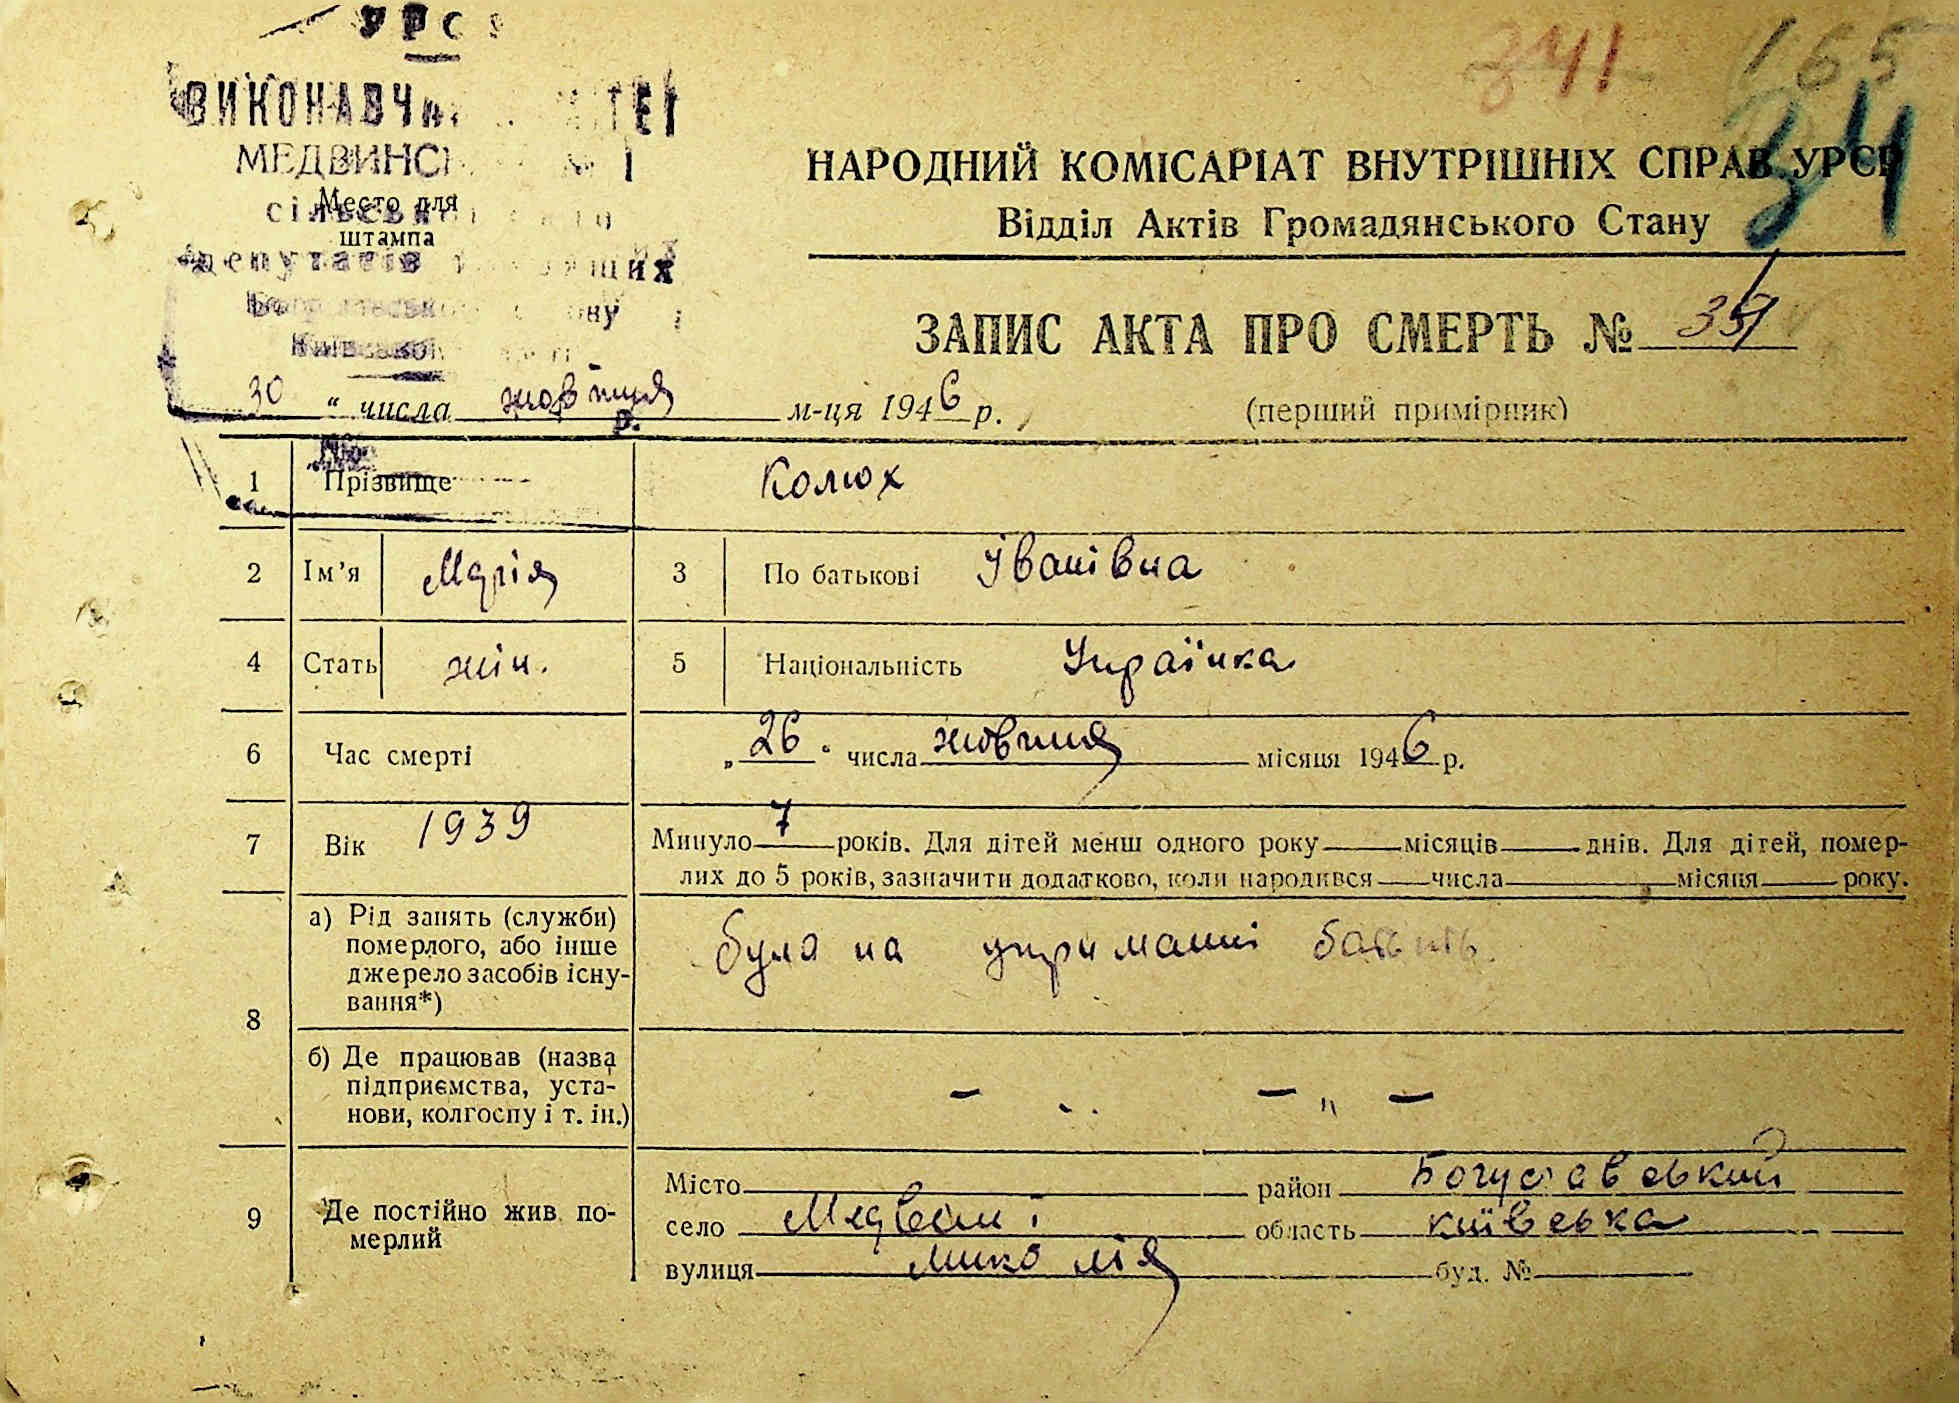 УРСР
341
165
34
МЕДВИНС
Место для
штампа
депутатів
НАРОДНИЙ КОМІСАРІАТ ВНУТРІШНІХ СПРАВ УРСР
Відділ Актів Громадянського Стану
ЗАПИС АКТА ПРО СМЕРТЬ №
30 “ числа жовтня м-ця 1946 р.
(перший примірник)
1 Прізвище Колюх
2 Ім’я Марія 3 По батькові Іванівна
4 Стать жін. 5 Національність Українка
6 Час смерті „26“ числа жовтня місяця 1946 р.
7 Вік 1939 Минуло 7 років. Для дітей менш одного року місяців днів. Для дітей, помер-
лих до 5 років, зазначити додатково, коли народився числа місяця року.
8 а) Рід занять (служби)
померлого, або інше
джерело засобів існу-
вання*)
була на утриманні батьків.
б) Де працював (назва
підприємства, уста-
нови, колгоспу і т. ін.)
— „ — " —
9 Де постійно жив по-
мерлий
Місто район Богуславський
село Медвин область київська
вулиця буд. №